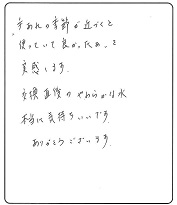 手あれの季節が近づくと
使っていて良かったぁ、と
実感します。
交換直後のやわらかな水
本当に気持ちいいです
ありがとうございます。